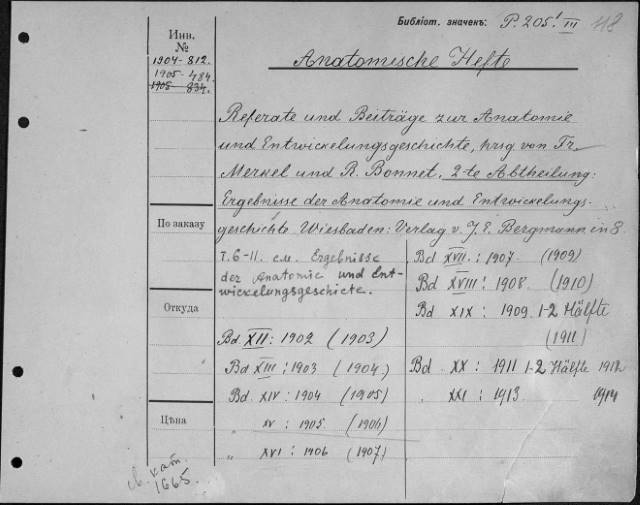 Библіот. значекъ: P. 205¹ III 48
Инв.
№
1904-812.
1905-484.
1905-834.
Anatomische Hefte
Referate und Beiträge zur Anatomie
und Entwickelungsgeschichte, hrsg von Fr.
Merkel und R. Bonnet, 2-te Abtheilung:
Ergebnisse der Anatomie und Entwickelungs-
geschichte Wiesbaden: Verlag v. J. F. Bergmann in 8
По заказу
Откуда
Цѣна
т. 6-11. см. Ergebnisse
der Anatomie und Ent-
wickelungsgeschichte.
Bd. XII: 1902 (1903)
Bd XIII: 1903 (1904)
Bd. XIV: 1904 (1905)
„ XV: 1905 (1906)
„ XVI: 1906 (1907)
Bd XVII: 1907 (1909)
Bd XVIII: 1908 (1910)
Bd XIX: 1909 1-2 Hälfte
(1911)
Bd. XX: 1911 1-2 Hälfte 1912
„ XXI: 1913 1914
св. кат.
1665.